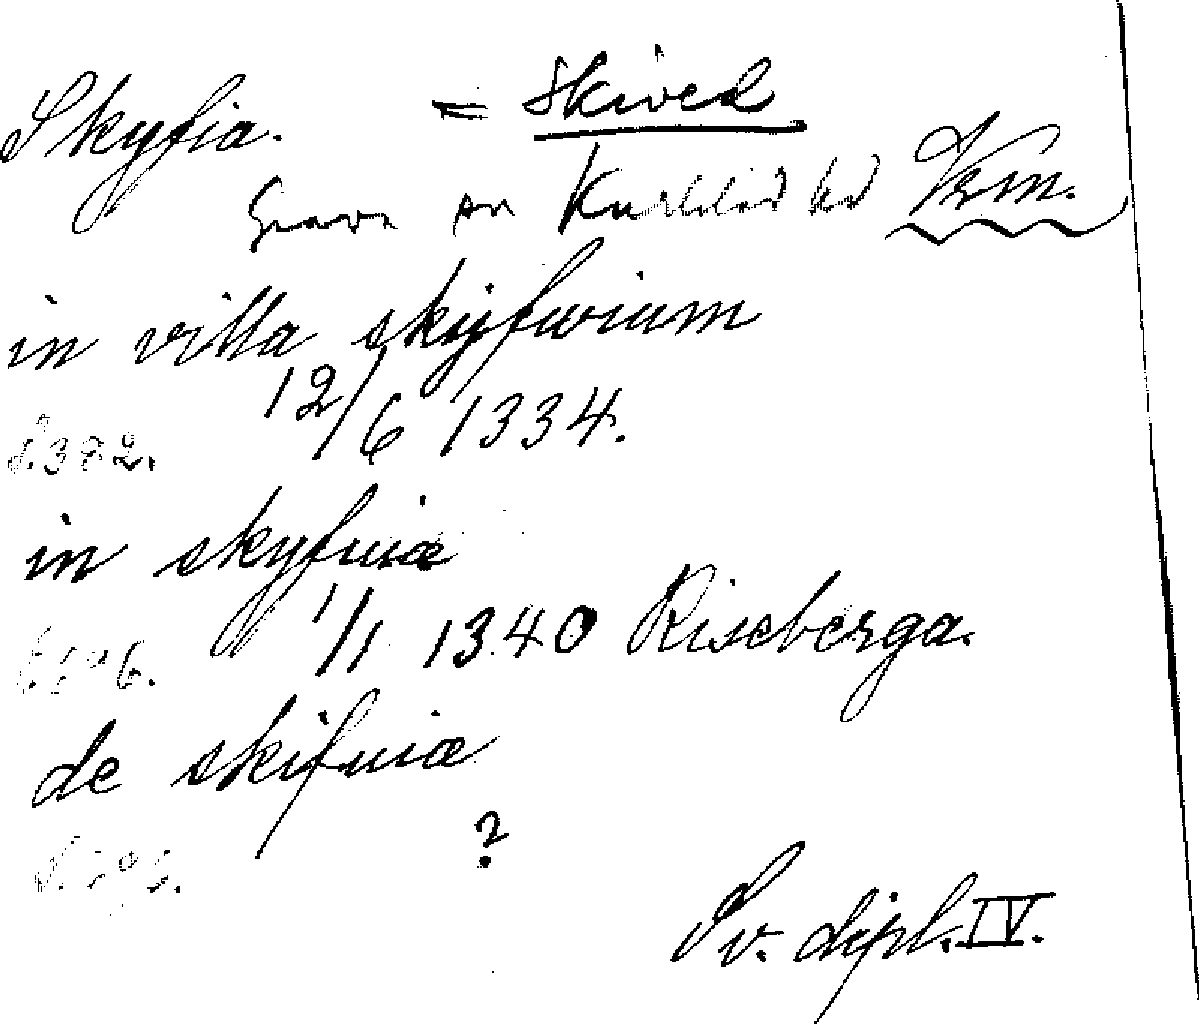 Skyfia. = Skived
Grava sn Karlstad hd Vrm.
in villa skyfwium
12/6 1334.
S. 382.
in skyfwiæ
1/1 1340 Riseberga.
de skifwiæ
?
Sv. dipl. IV.